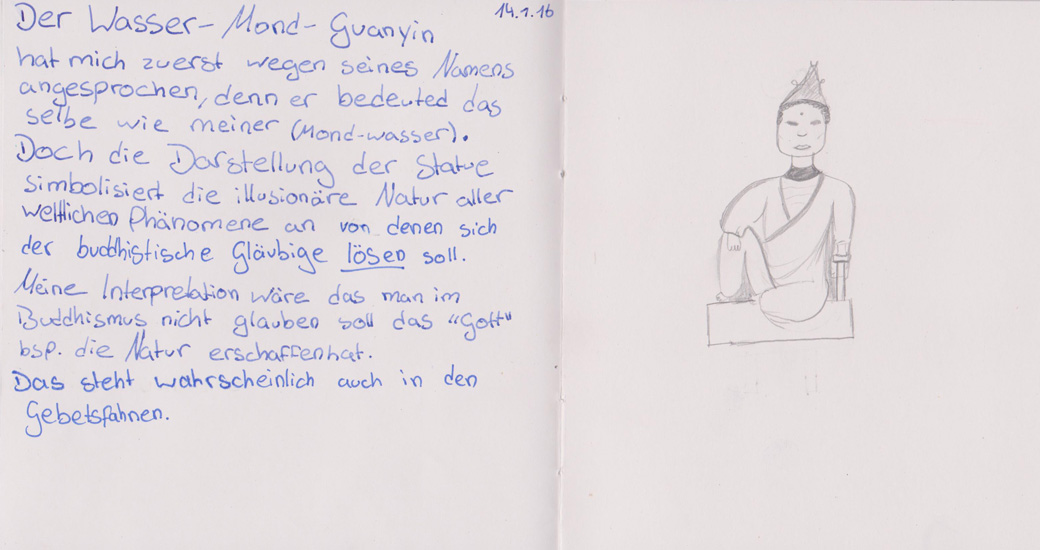 14.1.16
Der Wasser-Mond-Guanyin
hat mich zuerst wegen seines Namens
angesprochen, denn er bedeuted das
selbe wie meiner (Mond-wasser).
Doch die Darstellung der Statue
simbolisiert die illusionäre Natur aller
weltlichen Phänomene an von denen sich
der buddhistische Gläubige lösen soll.
Meine Interpretation wäre das man im
Buddhismus nicht glauben soll das "Gott"
bsp. die Natur erschaffenhat.
Das steht wahrscheinlich auch in den
Gebetsfahnen.